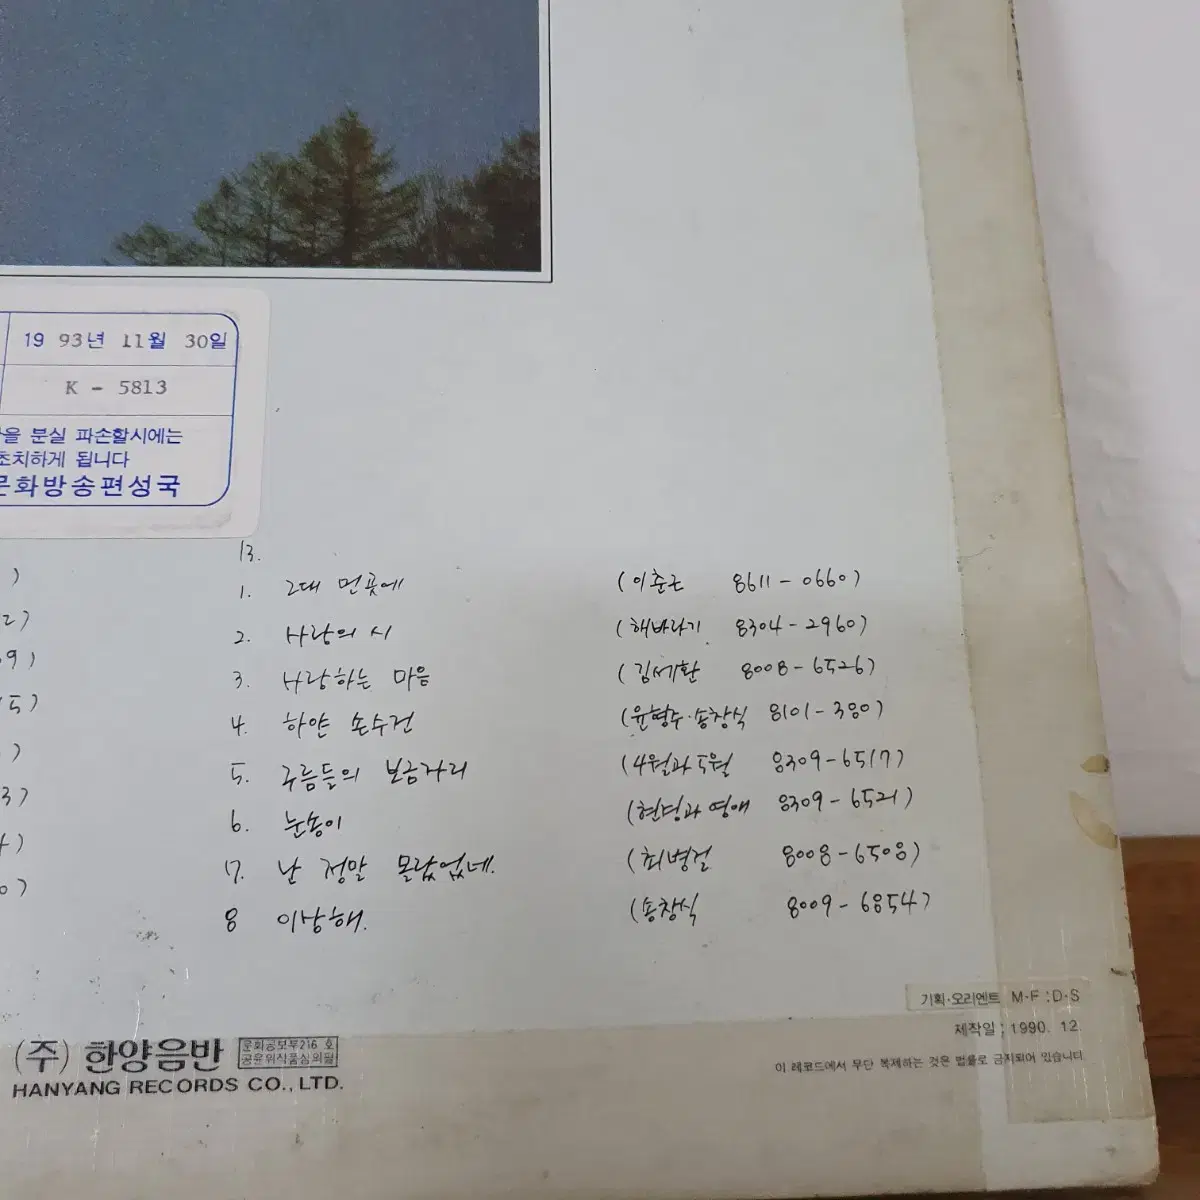 19 93년 11월 30일
K - 5813
을 분실 파손할시에는
초치하게 됩니다
문화방송편성국
)
2)
9)
5)
)
3)
4)
0)
B.
1. 그대 먼곳에 (이춘근 8611-0660)
2. 사랑의 시 (해바라기 8304-2960)
3. 사랑하는 마음 (김세환 8008-6526)
4. 하얀 손수건 (윤형주·송창식 8101-380)
5. 구름들의 보금자리 (4월과 5월 8309-6517)
6. 눈송이 (현경과 영애 8309-6521)
7. 난 정말 몰랐었네. (최병걸 8008-6508)
8 이상해. (송창식 8009-6854)
기획·오리엔트 M·F:D·S
제작일: 1990. 12.
이 레코드에서 무단 복제하는 것은 법률로 금지되어 있습니다
(주) 한양음반
문화공보부216 호
공윤위작품심의필
HANYANG RECORDS CO., LTD.